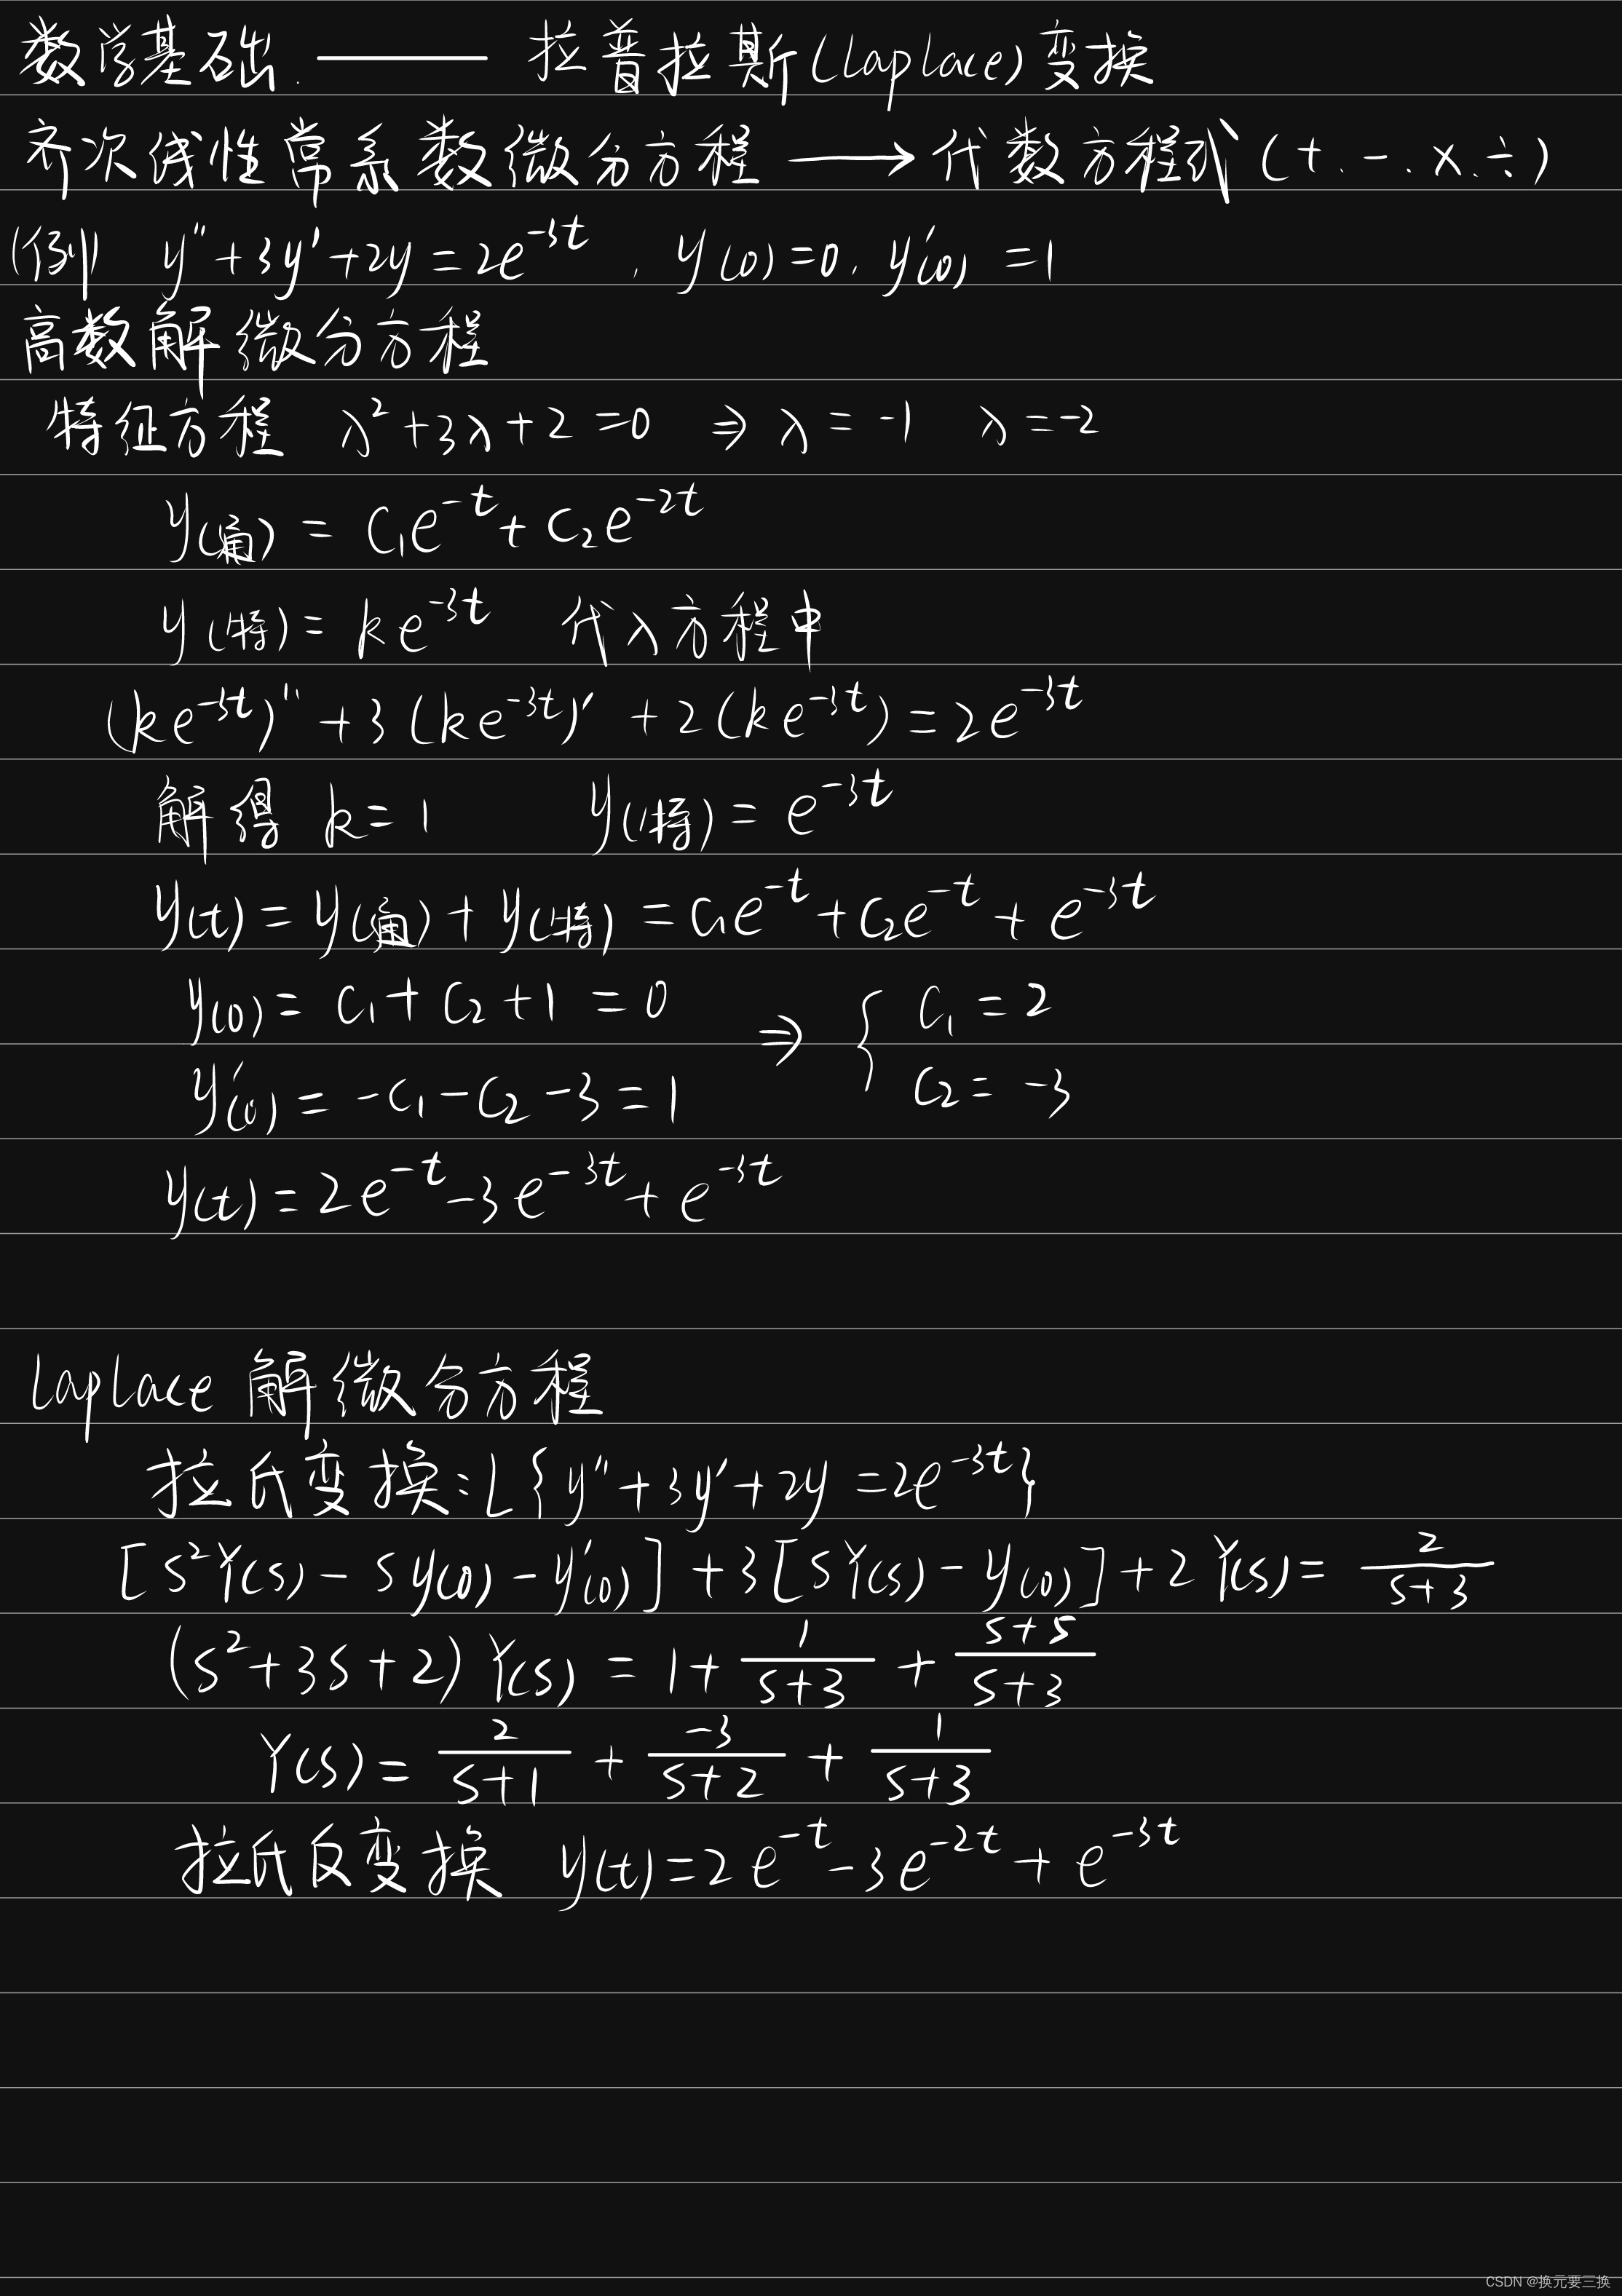 数学基础 —— 拉普拉斯(Laplace)变换
齐次线性常系数微分方程 ⟶ 代数方程式(+.-.×.÷)
(例) y''+3y'+2y=2e^{-3t}, y(0)=0, y'(0)=1
高数解微分方程
特征方程 λ²+3λ+2=0 ⇒ λ=-1 λ=-2
y(通) = C₁e^{-t}+C₂e^{-2t}
y(特) = ke^{-3t} 代入方程中
(ke^{-3t})''+3(ke^{-3t})'+2(ke^{-3t})=2e^{-3t}
解得 k=1 y(特)=e^{-3t}
y(t)=y(通)+y(特)=C₁e^{-t}+C₂e^{-t}+e^{-3t}
y(0)=C₁+C₂+1=0 ⇒ { C₁=2
y'(0)=-C₁-C₂-3=1 C₂=-3
y(t)=2e^{-t}-3e^{-3t}+e^{-3t}
Laplace 解微分方程
拉氏变换:L{y''+3y'+2y=2e^{-3t}}
[s²Y(s)-sy(0)-y'(0)]+3[sY(s)-y(0)]+2Y(s)=\frac{2}{s+3}
(s²+3s+2)Y(s)=1+\frac{1}{s+3}+\frac{s+5}{s+3}
Y(s)=\frac{2}{s+1}+\frac{-3}{s+2}+\frac{1}{s+3}
拉氏反变换 y(t)=2e^{-t}-3e^{-2t}+e^{-3t}
CSDN @换元要三换